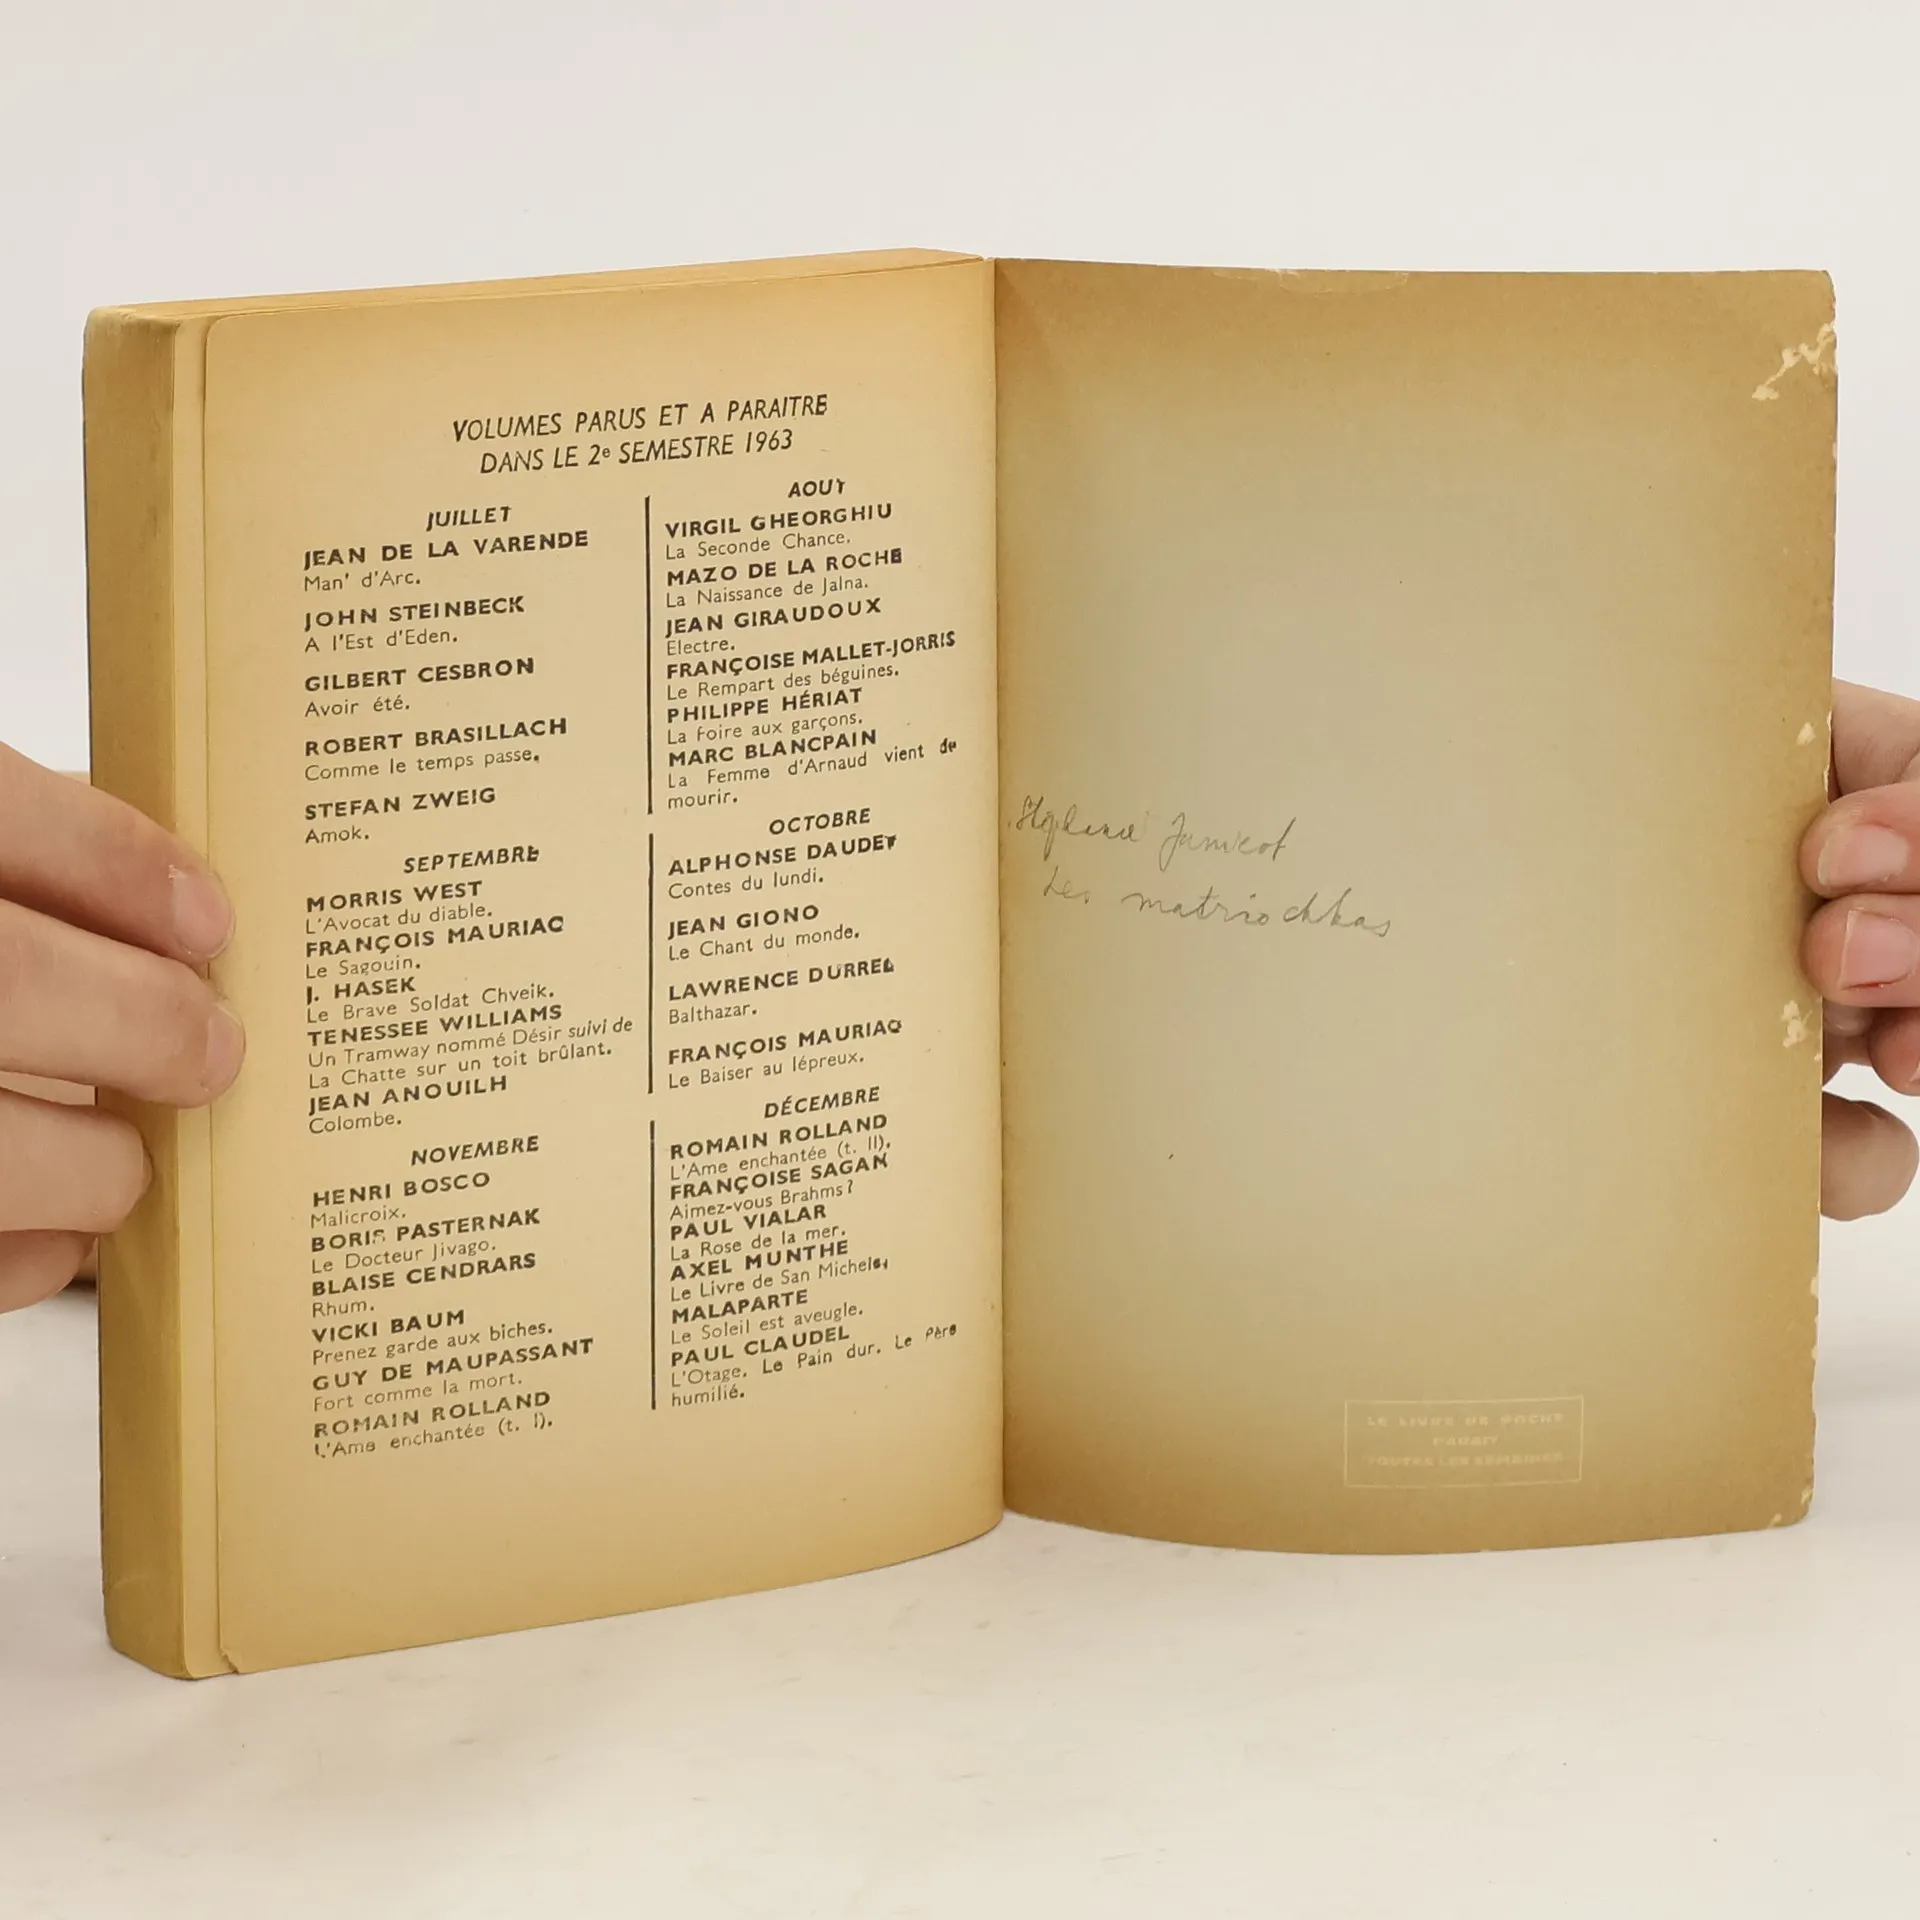 VOLUMES PARUS ET A PARAITRE
DANS LE 2e SEMESTRE 1963
JUILLET
JEAN DE LA VARENDE
Man' d'Arc.
JOHN STEINBECK
A l'Est d'Eden.
GILBERT CESBRON
Avoir été.
ROBERT BRASILLACH
Comme le temps passe.
STEFAN ZWEIG
Amok.
AOUT
VIRGIL GHEORGHIU
La Seconde Chance.
MAZO DE LA ROCHE
La Naissance de Jalna.
JEAN GIRAUDOUX
Electre.
FRANÇOISE MALLET-JORRIS
Le Rempart des béguines.
PHILIPPE HÉRIAT
La foire aux garçons.
MARC BLANCPAIN
La Femme d'Arnaud vient de
mourir.
SEPTEMBRE
MORRIS WEST
L'Avocat du diable.
FRANÇOIS MAURIAC
Le Sagouin.
J. HASEK
Le Brave Soldat Chveik.
TENESSEE WILLIAMS
Un Tramway nommé Désir suivi de
La Chatte sur un toit brûlant.
JEAN ANOUILH
Colombe.
OCTOBRE
ALPHONSE DAUDET
Contes du lundi.
JEAN GIONO
Le Chant du monde.
LAWRENCE DURREL
Balthazar.
FRANÇOIS MAURIAC
Le Baiser au lépreux.
NOVEMBRE
HENRI BOSCO
Malicroix.
BORIS PASTERNAK
Le Docteur Jivago.
BLAISE CENDRARS
Rhum.
VICKI BAUM
Prenez garde aux biches.
GUY DE MAUPASSANT
Fort comme la mort.
ROMAIN ROLLAND
L'Ame enchantée (t. I).
DÉCEMBRE
ROMAIN ROLLAND
L'Ame enchantée (t. II).
FRANÇOISE SAGAN
Aimez-vous Brahms?
PAUL VIALAR
La Rose de la mer.
AXEL MUNTHE
Le Livre de San Michele.
MALAPARTE
Le Soleil est aveugle.
PAUL CLAUDEL
L'Otage. Le Pain dur. Le Père
humilié.
Les matriochkas
LE LIVRE DE POCHE
PARAIT
TOUTES LES SEMAINES